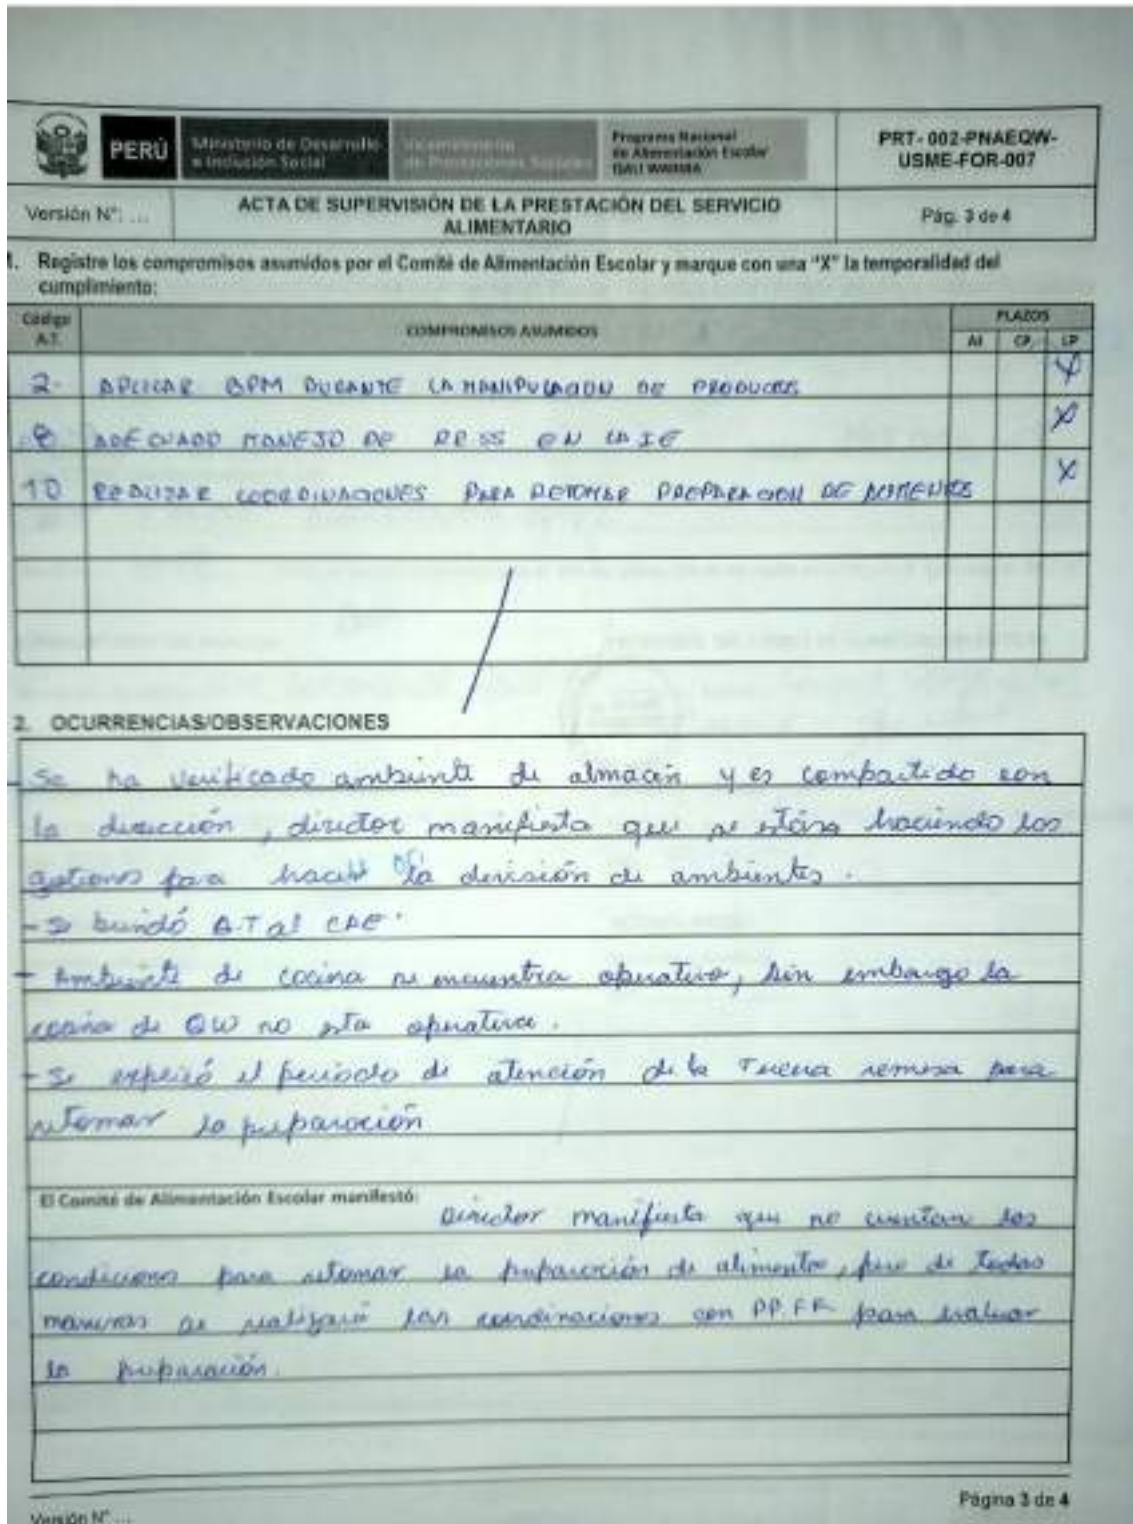 PERÚ
Ministerio de Desarrollo
e Inclusión Social
Viceministerio
de Prestaciones Sociales
Programa Nacional
de Alimentación Escolar
QALI WARMA
PRT- 002-PNAEQW-
USME-FOR-007
Versión N°: ...
ACTA DE SUPERVISIÓN DE LA PRESTACIÓN DEL SERVICIO
ALIMENTARIO
Pág. 3 de 4
1. Registre los compromisos asumidos por el Comité de Alimentación Escolar y marque con una "X" la temporalidad del
cumplimiento:
Código
A.T.
COMPROMISOS ASUMIDOS
PLAZOS
AI CP LP
2- APLICAR BPM DURANTE LA MANIPULACION DE PRODUCTOS X
8 ADECUADO MANEJO DE RRSS EN LA IE X
10 REALIZAR COORDINACIONES PARA RETOMAR PREPARACION DE ALIMENTOS X
2. OCURRENCIAS/OBSERVACIONES
- Se ha verificado ambiente de almacén y es compartido con
la dirección, director manifiesta que se están haciendo las
gestiones para hacer la división de ambientes.
- Se brindó A.T al CAE.
- Ambiente de cocina se encuentra operativo, sin embargo la
cocina de QW no esta operativa.
- Se explicó el periodo de atención de la Tercera remesa para
retomar la preparación
El Comité de Alimentación Escolar manifestó:
Director manifiesta que no cuentan las
condiciones para retomar la preparación de alimentos, pero de todas
maneras se realizará las coordinaciones con PP.FF. para evaluar
la preparación.
Página 3 de 4
Versión N° ...